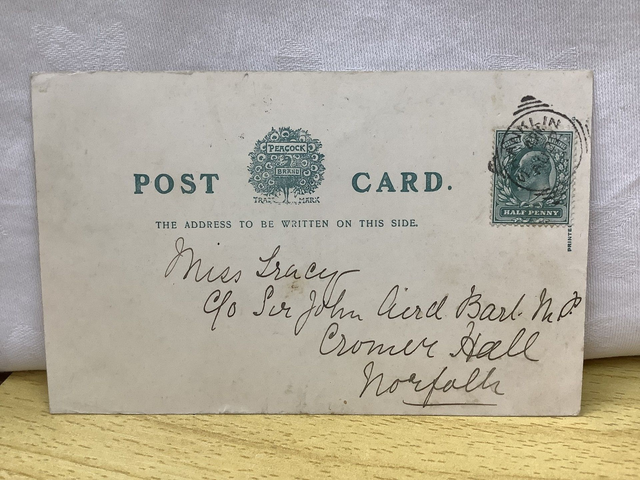 POST CARD.
PEACOCK
BRAND
TRADE MARK
THE ADDRESS TO BE WRITTEN ON THIS SIDE.
HALF PENNY
Miss Tracy
C/o Sir John Aird Bart. M.P.
Cromer Hall
Norfolk